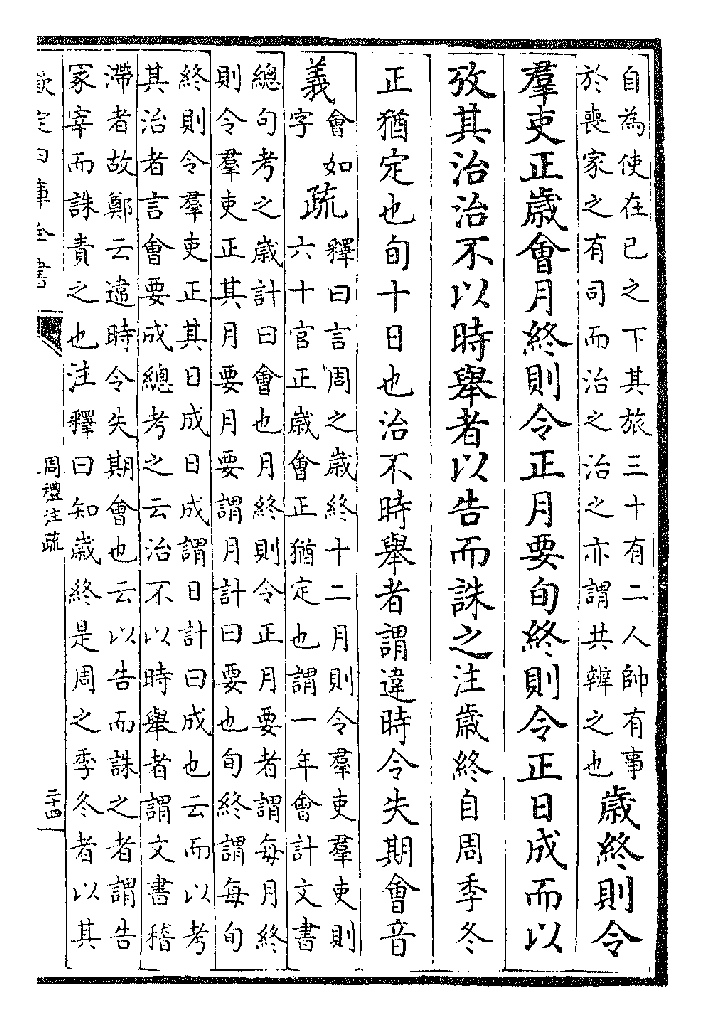 自為使在已之下其旅三十有二人帥有事
於喪家之有司而治之治之亦謂共辦之也
歲終則令
羣吏正歲會月終則令正月要旬終則令正日成而以
攷其治治不以時舉者以告而誅之注歲終自周季冬
正猶定也旬十日也治不時舉者謂違時令失期會音
義
會如
字
疏
釋曰言周之歲終十二月則令羣吏羣吏則
六十官正歲會正猶定也謂一年會計文書
總句考之歲計曰會也月終則令正月要者謂每月終
則令羣吏正其月要月要謂月計曰要也旬終謂每旬
終則令羣吏正其日成日成謂日計曰成也云而以考
其治者言會要成總考之云治不以時舉者謂文書稽
滯者故鄭云違時令失期會也云以告而誅之者謂告
冢宰而誅責之也注釋曰知歲終是周之季冬者以其
欽定四庫全書
周禮注疏
二十四